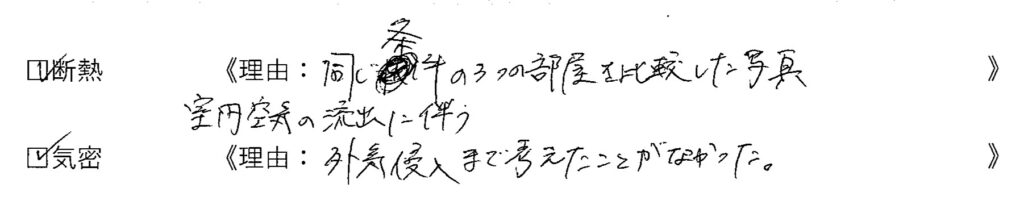 ☑断熱 《理由：同じ条件の3つの部屋を比較した写真 》
室内空気の流出に伴う
☑気密 《理由：外気侵入まで考えたことがなかった。 》